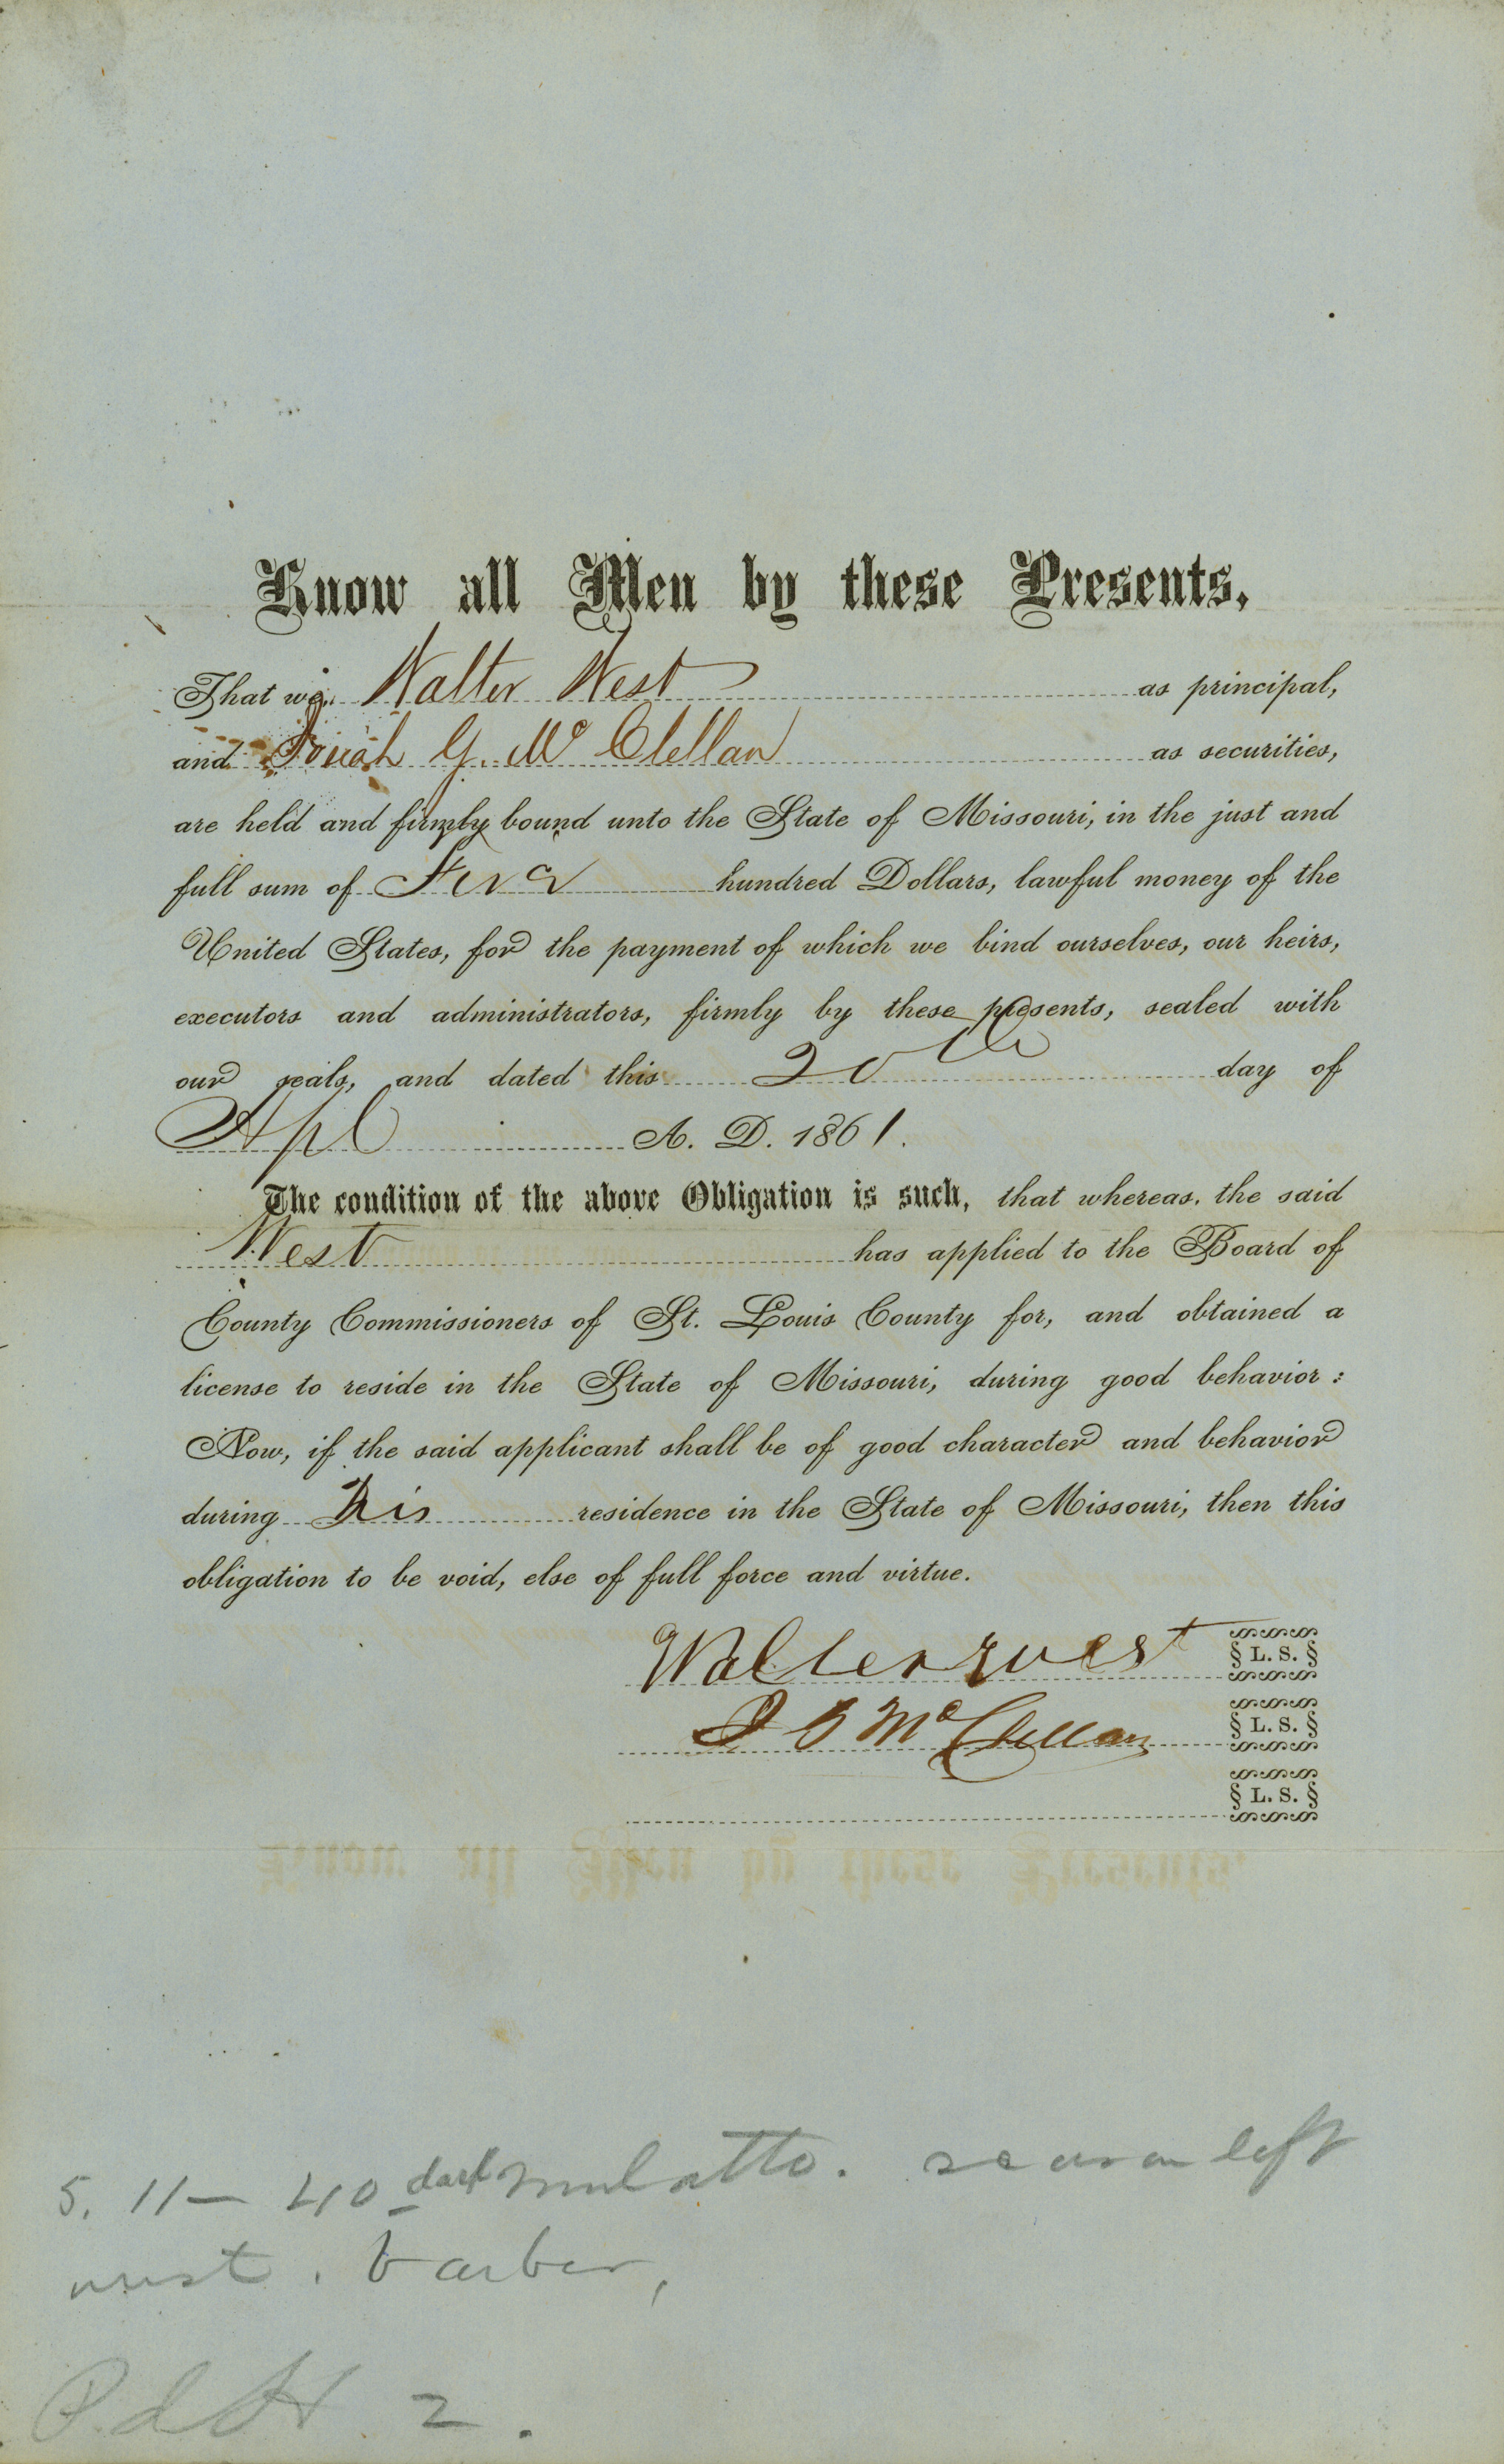 Know all Men by these Presents,
That we, Walter West as principal,
and Josiah G. Mc Clellan as securities,
are held and firmly bound unto the State of Missouri, in the just and
full sum of Five hundred Dollars, lawful money of the
United States, for the payment of which we bind ourselves, our heirs,
executors and administrators, firmly by these presents, sealed with
our seals, and dated this 20th day of
Apl A. D. 1861.
The condition of the above Obligation is such, that whereas, the said
West has applied to the Board of
County Commissioners of St. Louis County for, and obtained a
license to reside in the State of Missouri, during good behavior :
Now, if the said applicant shall be of good character and behavior
during his residence in the State of Missouri, then this
obligation to be void, else of full force and virtue.
Walter west § L. S. §
J G McClellan § L. S. §
§ L. S. §
5. 11 — 40 dark mulatto. scar on left
wrist. barber,
2.